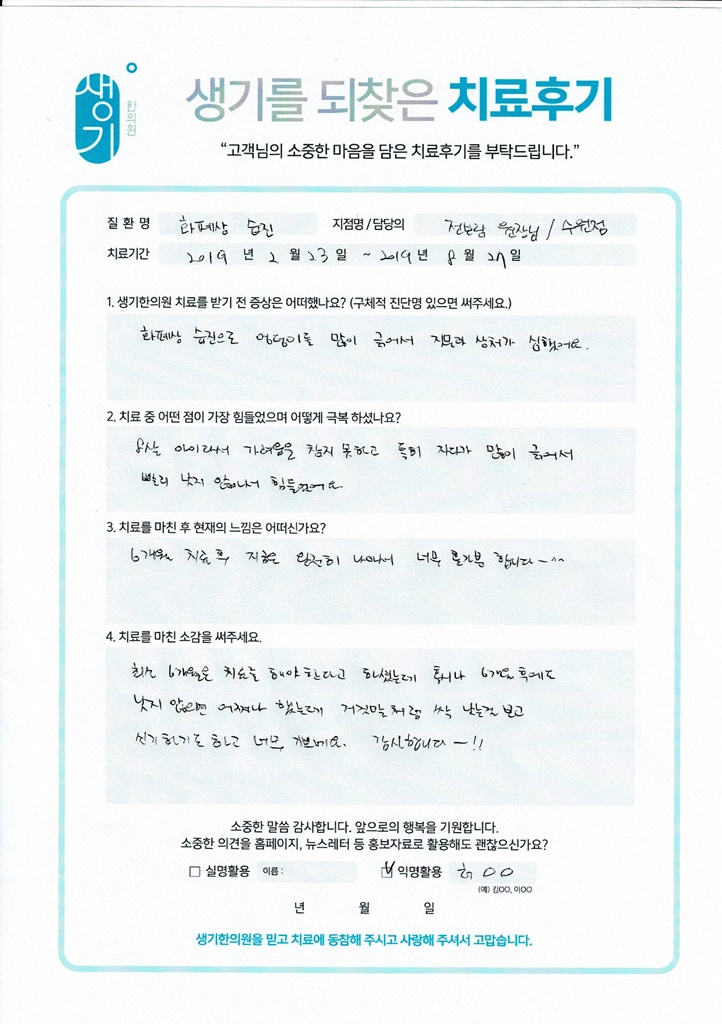 생기
한의원
생기를 되찾은 치료후기
“고객님의 소중한 마음을 담은 치료후기를 부탁드립니다.”
질 환 명 화폐상 습진 지점명 / 담당의 전보람 원장님 / 수원점
치료기간 2019 년 2 월 23 일 ~ 2019 년 8 월 27 일
1. 생기한의원 치료를 받기 전 증상은 어떠했나요? (구체적 진단명 있으면 써주세요.)
화폐상 습진으로 엉덩이를 많이 긁어서 진물과 상처가 심했어요.
2. 치료 중 어떤 점이 가장 힘들었으며 어떻게 극복 하셨나요?
8살 아이라서 가려움을 참지 못하고 특히 자다가 많이 긁어서
빨리 낫지 않아서 힘들었어요
3. 치료를 마친 후 현재의 느낌은 어떠신가요?
6개월 치료 후 지금은 완전히 나아서 너무 홀가분 합니다~^^
4. 치료를 마친 소감을 써주세요.
최소 6개월은 치료를 해야 한다고 하셨는데 혹시나 6개월 후에도
낫지 않으면 어쩌나 했는데 거짓말처럼 싹 낫는걸 보고
신기하기도 하고 너무 기쁘네요. 감사합니다~!!
소중한 말씀 감사합니다. 앞으로의 행복을 기원합니다.
소중한 의견을 홈페이지, 뉴스레터 등 홍보자료로 활용해도 괜찮으신가요?
실명활용 이름 : 익명활용 허 OO
(예) 김OO, 이OO
년 월 일
생기한의원을 믿고 치료에 동참해 주시고 사랑해 주셔서 고맙습니다.